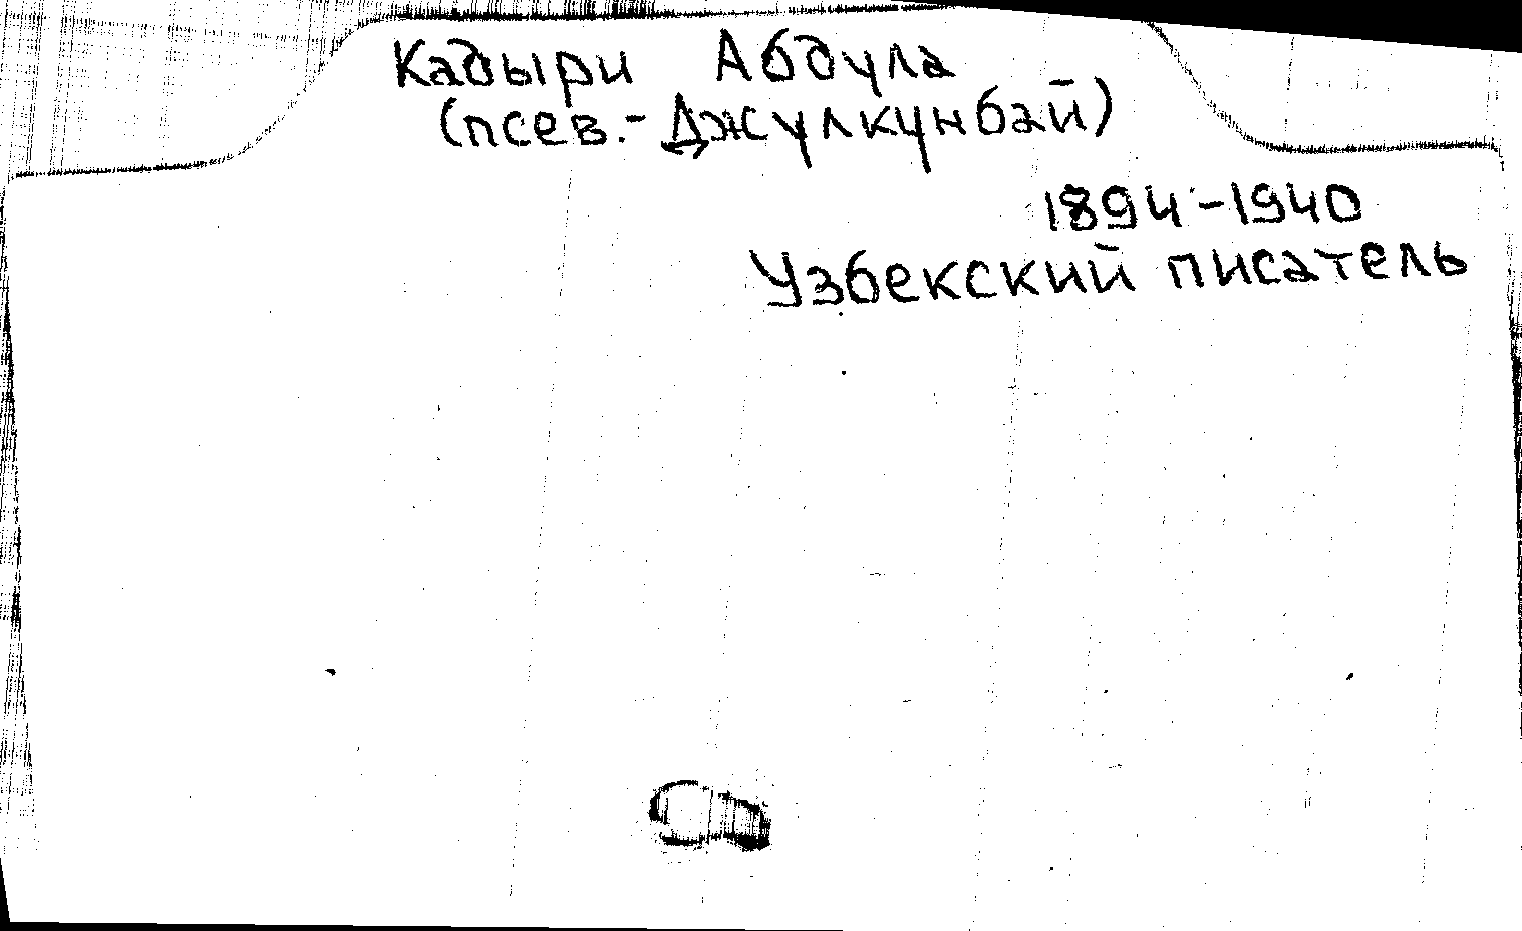 Кадыри Абдула
(псев.- Джулкунбай)
1894-1940
Узбекский писатель